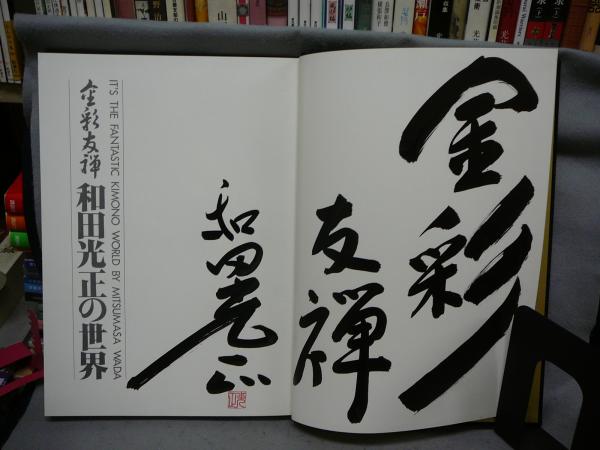 金彩
友禅
和田光正
金彩友禅
和田光正の世界
IT'S THE FANTASTIC KIMONO WORLD BY MITSUMASA WADA